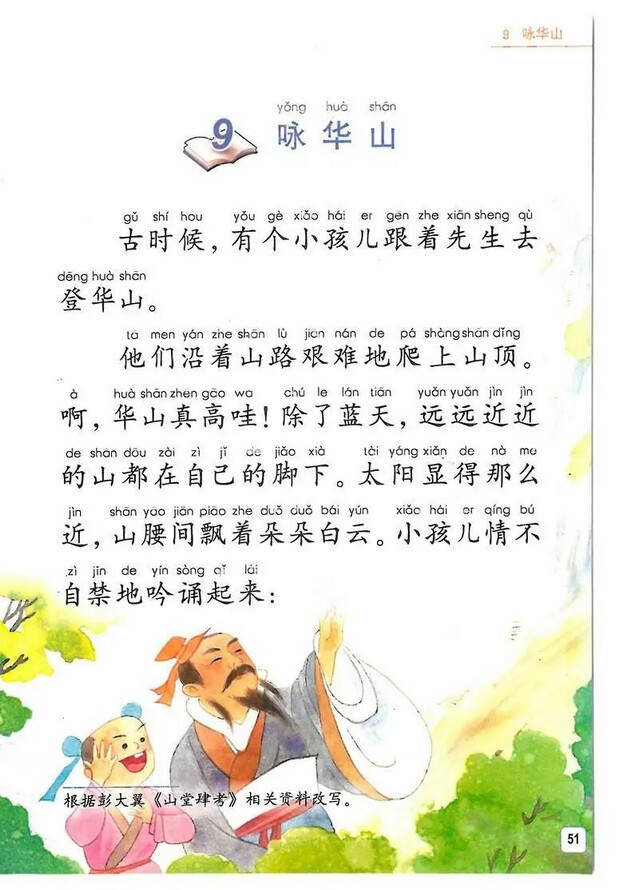 9 咏华山
yǒng huà shān
9 咏华山
gǔ shí hou yǒu gè xiǎo hái er gēn zhe xiān sheng qù
古时候，有个小孩儿跟着先生去
dēng huà shān
登华山。
tā men yán zhe shān lù jiān nán de pá shàng shān dǐng
他们沿着山路艰难地爬上山顶。
à huà shān zhēn gāo wa chú le lán tiān yuǎn yuǎn jìn jìn
啊，华山真高哇！除了蓝天，远远近近
de shān dōu zài zì jǐ de jiǎo xià tài yáng xiǎn de nà me
的山都在自己的脚下。太阳显得那么
jìn shān yāo jiān piāo zhe duǒ duǒ bái yún xiǎo hái er qíng bú
近，山腰间飘着朵朵白云。小孩儿情不
zì jīn de yín sòng qǐ lái
自禁地吟诵起来：
根据彭大翼《山堂肆考》相关资料改写。
51